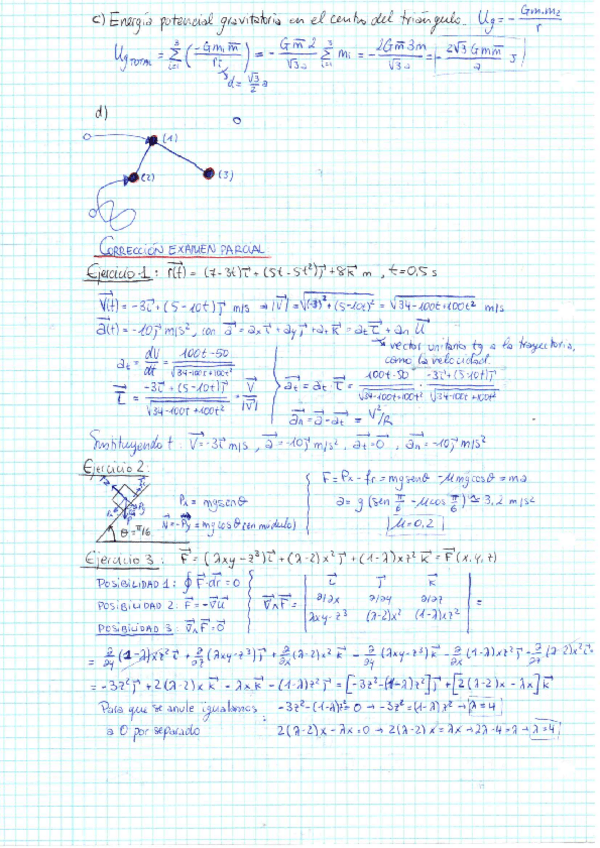 c) Energía potencial gravitatoria en el centro del triángulo. Ug = - G m₁ m₂ / r
Ug TOTAL = Σ³ᵢ₌₁ (-G mᵢ m̄ / rᵢ) = - G m̄ 2 / √3 a Σ³ᵢ₌₁ mᵢ = - 2G m̄ 3m / √3 a = - 2√3 G m m̄ / a J
d = √3/2 a
d)
(1)
(2)
(3)
CORRECCIÓN EXAMEN PARCIAL
Ejercicio 1: r⃗(t) = (7-3t) i⃗ + (5t-5t²) j⃗ + 8 k⃗ m, t=0,5 s
V⃗(t) = -3 i⃗ + (5-10t) j⃗ m/s ⇒ |V⃗| = √((-3)² + (5-10t)²) = √(34-100t+100t²) m/s
a⃗(t) = -10 j⃗ m/s², con a⃗ = aₓ i⃗ + a_y j⃗ + a_z k⃗ = a_t τ⃗ + a_n u⃗
vector unitario tg a la trayectoria,
como la velocidad.
a_t = dV/dt = (100t-50) / √(34-100t+100t²)
τ⃗ = (-3 i⃗ + (5-10t) j⃗) / √(34-100t+100t²) = V⃗ / |V⃗|
a⃗_t = a_t · τ⃗ = (100t-50) / √(34-100t+100t²) · (-3 i⃗ + (5-10t) j⃗) / √(34-100t+100t²)
a⃗_n = a⃗ - a⃗_t = V²/R
Sustituyendo t: V⃗ = -3 i⃗ m/s, a⃗ = -10 j⃗ m/s², a⃗_t = 0, a⃗_n = -10 j⃗ m/s²
Ejercicio 2:
Pₓ = mg senθ
N⃗ = -P⃗y = mg cosθ (en módulo)
θ = π/6
F = Pₓ - fr = mg senθ - μmg cosθ = ma
a = g (sen π/6 - μ cos π/6) ≃ 3,2 m/s²
μ = 0,2
Ejercicio 3: F⃗ = (λxy - z³) i⃗ + (λ-2)x² j⃗ + (1-λ)xz² k⃗ = F⃗(x,y,z)
POSIBILIDAD 1: ∮ F⃗·dr⃗ = 0
POSIBILIDAD 2: F⃗ = -∇⃗U
POSIBILIDAD 3: ∇⃗×F⃗ = 0
∇⃗×F⃗ =
i⃗ j⃗ k⃗
∂/∂x ∂/∂y ∂/∂z =
λxy-z³ (λ-2)x² (1-λ)xz²
= ∂/∂y (1-λ)xz² i⃗ + ∂/∂z (λxy-z³) j⃗ + ∂/∂x (λ-2)x² k⃗ - ∂/∂y (λxy-z³) k⃗ - ∂/∂x (1-λ)xz² j⃗ - ∂/∂z (λ-2)x² i⃗ =
= -3z² j⃗ + 2(λ-2)x k⃗ - λx k⃗ - (1-λ)z² j⃗ = [-3z² - (1-λ)z²] j⃗ + [2(λ-2)x - λx] k⃗
Para que se anule igualamos -3z² - (1-λ)z² = 0 → -3z² = (1-λ)z² → λ=4
a 0 por separado 2(λ-2)x - λx = 0 → 2(λ-2)x = λx → 2λ-4 = λ → λ=4